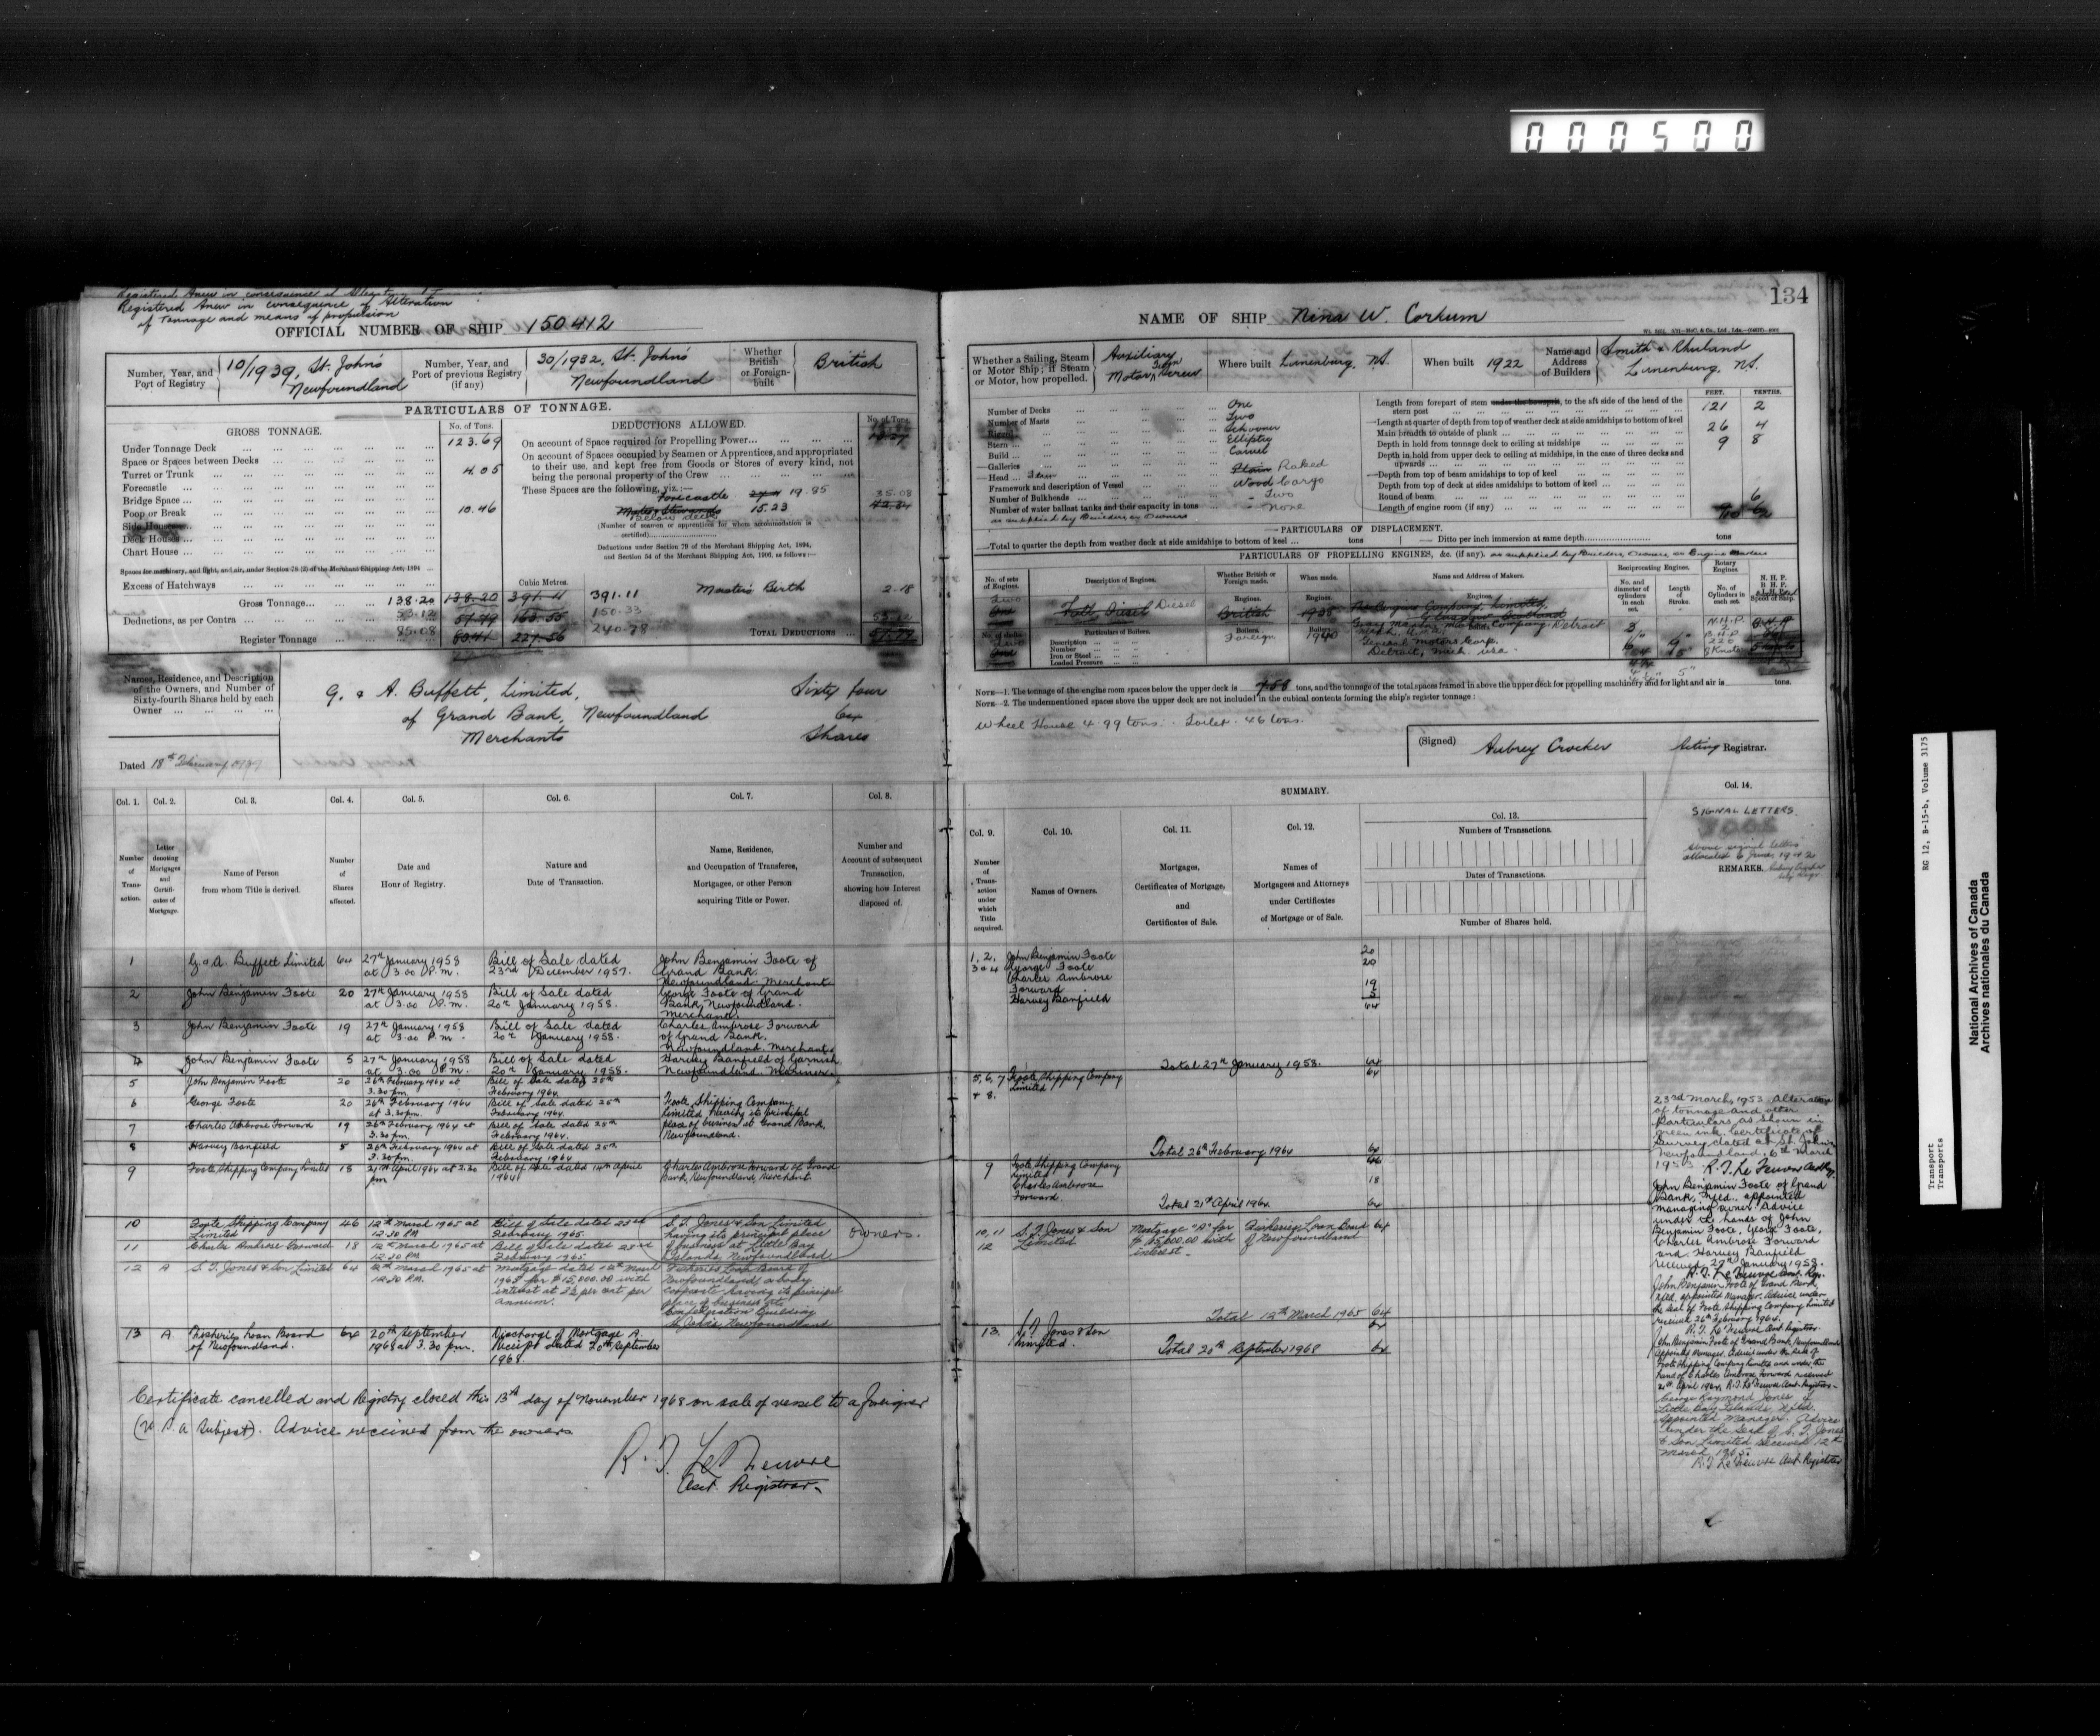 000500
134
Registered Anew in consequence of Alteration
of Tonnage and means of propulsion
OFFICIAL NUMBER OF SHIP 150412
NAME OF SHIP Nina W. Corkum
Number, Year, and Port of Registry
10/1939, St. John's Newfoundland
Number, Year, and Port of previous Registry (if any)
30/1932, St. John's Newfoundland
Whether British or Foreign-built
British
PARTICULARS OF TONNAGE.
GROSS TONNAGE.
No. of Tons.
Under Tonnage Deck 123.69
Space or Spaces between Decks
Turret or Trunk 4.05
Forecastle
Bridge Space
Poop or Break 10.46
Side Houses
Deck Houses
Chart House
Spaces for machinery, and light, and air, under Section 78 (2) of the Merchant Shipping Act, 1894
Excess of Hatchways
Cubic Metres.
Gross Tonnage 138.20 138.20 391.11 391.11
Deductions, as per Contra 53.12 57.79 163.55 150.33
Register Tonnage 85.08 80.41 227.56 240.78
DEDUCTIONS ALLOWED.
No. of Tons.
On account of Space required for Propelling Power
On account of Spaces occupied by Seamen or Apprentices, and appropriated
to their use, and kept free from Goods or Stores of every kind, not
being the personal property of the Crew
These Spaces are the following, viz.:—
Forecastle 19.85 35.08
below deck 15.23
(Number of seamen or apprentices for whom accommodation is
certified)
Deductions under Section 79 of the Merchant Shipping Act, 1894,
and Section 54 of the Merchant Shipping Act, 1906, as follows:—
Master's Birth 2.18
53.12
TOTAL DEDUCTIONS 57.79
Names, Residence, and Description
of the Owners, and Number of
Sixty-fourth Shares held by each
Owner
G. & A. Buffett, Limited, Sixty four
of Grand Bank, Newfoundland 64
Merchants Shares
Dated 18th February
Whether a Sailing, Steam or Motor Ship; if Steam or Motor, how propelled.
Auxiliary Motor, Twin Screw
Where built Lunenburg, N.S.
When built 1922
Name and Address of Builders
Smith & Rhuland
Lunenburg, N.S.
Number of Decks One
Number of Masts Two
Rigged Schooner
Stern Elliptic
Build Carvel
Galleries
Head Stem Plain Raked
Framework and description of Vessel Wood Cargo
Number of Bulkheads Two
Number of water ballast tanks and their capacity in tons None
as supplied by Builders or Owners
FEET. TENTHS.
Length from forepart of stem under the bowsprit, to the aft side of the head of the stern post 121 2
Length at quarter of depth from top of weather deck at side amidships to bottom of keel
Main breadth to outside of plank 26 4
Depth in hold from tonnage deck to ceiling at midships 9 8
Depth in hold from upper deck to ceiling at midships, in the case of three decks and upwards
Depth from top of beam amidships to top of keel
Depth from top of deck at sides amidships to bottom of keel
Round of beam 6
Length of engine room (if any)
PARTICULARS OF DISPLACEMENT.
Total to quarter the depth from weather deck at side amidships to bottom of keel ... tons
Ditto per inch immersion at same depth tons
PARTICULARS OF PROPELLING ENGINES, &c. (if any), as supplied by Builders, Owners, or Engine Makers
No. of sets of Engines.
Description of Engines.
Whether British or Foreign made.
When made.
Name and Address of Makers.
Reciprocating Engines.
No. and diameter of cylinders in each set.
Length of Stroke.
Rotary Engines.
No. of Cylinders in each set.
Two
One
Diesel
Engines.
British
Foreign
1938
1940
Gray Marine Motor Company Detroit
General Motors Corp.
Detroit, Mich. USA.
Particulars of Boilers.
Description
Number
Iron or Steel
Loaded Pressure
NOTE—1. The tonnage of the engine room spaces below the upper deck is 7.58 tons, and the tonnage of the total spaces framed in above the upper deck for propelling machinery and for light and air is tons.
NOTE—2. The undermentioned spaces above the upper deck are not included in the cubical contents forming the ship's register tonnage:
Wheel House 4.99 tons. Toilet .46 tons.
(Signed) Aubrey Crocker Acting Registrar.
Col. 1. Col. 2. Col. 3. Col. 4. Col. 5. Col. 6. Col. 7. Col. 8.
Number of Transaction.
Letter denoting Mortgages and Certificates of Mortgage.
Name of Person from whom Title is derived.
Number of Shares affected.
Date and Hour of Registry.
Nature and Date of Transaction.
Name, Residence, and Occupation of Transferee, Mortgagee, or other Person acquiring Title or Power.
Number and Account of subsequent Transaction, showing how Interest disposed of.
1 G. & A. Buffett Limited 64 27th January 1958 at 3.00 P.m. Bill of Sale dated 23rd December 1957. John Benjamin Foote of Grand Bank. Newfoundland. Merchant
2 John Benjamin Foote 20 27th January 1958 at 3.00 P.m. Bill of Sale dated 20th January 1958. George Foote of Grand Bank, Newfoundland. Merchant.
3 John Benjamin Foote 19 27th January 1958 at 3.00 P.m. Bill of Sale dated 20th January 1958. Charles Ambrose Forward of Grand Bank. Newfoundland. Merchant.
4 John Benjamin Foote 5 27th January 1958 at 3.00 P.m. Bill of Sale dated 20th January 1958. Harvey Banfield of Garnish, Newfoundland. Mariner.
5 John Benjamin Foote 20 26th February 1964 at 3.30 pm. Bill of Sale dated 25th February 1964.
6 George Foote 20 26th February 1964 at 3.30 pm. Bill of Sale dated 25th February 1964. Foote Shipping Company Limited, having its principal place of business at Grand Bank, Newfoundland.
7 Charles Ambrose Forward 19 26th February 1964 at 3.30 pm. Bill of Sale dated 25th February 1964.
8 Harvey Banfield 5 26th February 1964 at 3.30 pm. Bill of Sale dated 25th February 1964
9 Foote Shipping Company Limited 18 21st April 1964 at 2.30 pm Bill of Sale dated 14th April 1964 Charles Ambrose Forward of Grand Bank, Newfoundland, Merchant
10 Foote Shipping Company Limited 46 12th March 1965 at 12.30 P.M. Bill of Sale dated 23rd February 1965. S. T. Jones & Son Limited having its principal place of business at Little Bay Islands, Newfoundland owners.
11 Charles Ambrose Forward 18 12th March 1965 at 12.30 P.M. Bill of Sale dated 23rd February 1965.
12 A S. T. Jones & Son Limited 64 12th March 1965 at 12.30 P.M. Mortgage dated 12th March 1965 for $15,000.00 with interest at 3½ per cent per annum. Fisheries Loan Board of Newfoundland, a body corporate having its principal place of business at Confederation Building St. John's, Newfoundland
13 A Fisheries Loan Board of Newfoundland. 64 20th September 1968 at 3.30 pm. Discharge of Mortgage A. Receipt dated 20th September 1968.
Certificate cancelled and Registry closed this 13th day of November 1968 on sale of vessel to a foreigner
(U.S.A. Subject). Advice received from the owners
R. T. Le Feuvre
Asst. Registrar.
SUMMARY.
Col. 9. Col. 10. Col. 11. Col. 12. Col. 13. Col. 14.
Number of Transaction under which Title acquired.
Names of Owners.
Mortgages, Certificates of Mortgage, and Certificates of Sale.
Names of Mortgagees and Attorneys under Certificates of Mortgage or of Sale.
Numbers of Transactions.
Dates of Transactions.
Number of Shares held.
SIGNAL LETTERS.
above signal letters
allocated 6 June, 1942
REMARKS.
1, 2, 3 & 4 John Benjamin Foote 20
George Foote 20
Charles Ambrose Forward 19
Harvey Banfield 5
64
Total 27th January 1958. 64
5, 6, 7 & 8. Foote Shipping Company Limited 64
Total 26th February 1964 64
9 Foote Shipping Company Limited 46
Charles Ambrose Forward. 18
Total 21st April 1964. 64
10, 11 12 S. T. Jones & Son Limited Mortgage "A" for $15,000.00 with interest Fisheries Loan Board of Newfoundland 64
Total 12th March 1965 64
13. S. T. Jones & Son Limited. 64
Total 20th September 1968 64
23rd March, 1953. Alteration
of tonnage and other
particulars as shown in
green ink. Certificate of
Survey dated at St. John's
Newfoundland, 6th March
1953. R. T. Le Feuvre
John Benjamin Foote of Grand
Bank, Nfld., appointed
managing owner. Advice
under the hands of John
Benjamin Foote, George Foote,
Charles Ambrose Forward
and Harvey Banfield
received 27th January 1958.
R. T. Le Feuvre Asst. Reg.
John Benjamin Foote of Grand Bank
Nfld. appointed Manager. Advice under
the seal of Foote Shipping Company Limited
received 26th February 1964.
R. T. Le Feuvre Asst Registrar.
John Benjamin Foote of Grand Bank Newfoundland
appointed Manager. Advice under the Seal of
Foote Shipping Company Limited and under the
hand of Charles Ambrose Forward received
21st April 1964. R. T. Le Feuvre Asst. Registrar.
George Raymond Jones of
Little Bay Islands, Nfld.
appointed Manager. Advice
under the Seal of S. T. Jones
& Son Limited received 12th
March 1965.
R. T. Le Feuvre Asst Registrar
RG 12, B-15-b, Volume 3175
Transport
Transports
National Archives of Canada
Archives nationales du Canada